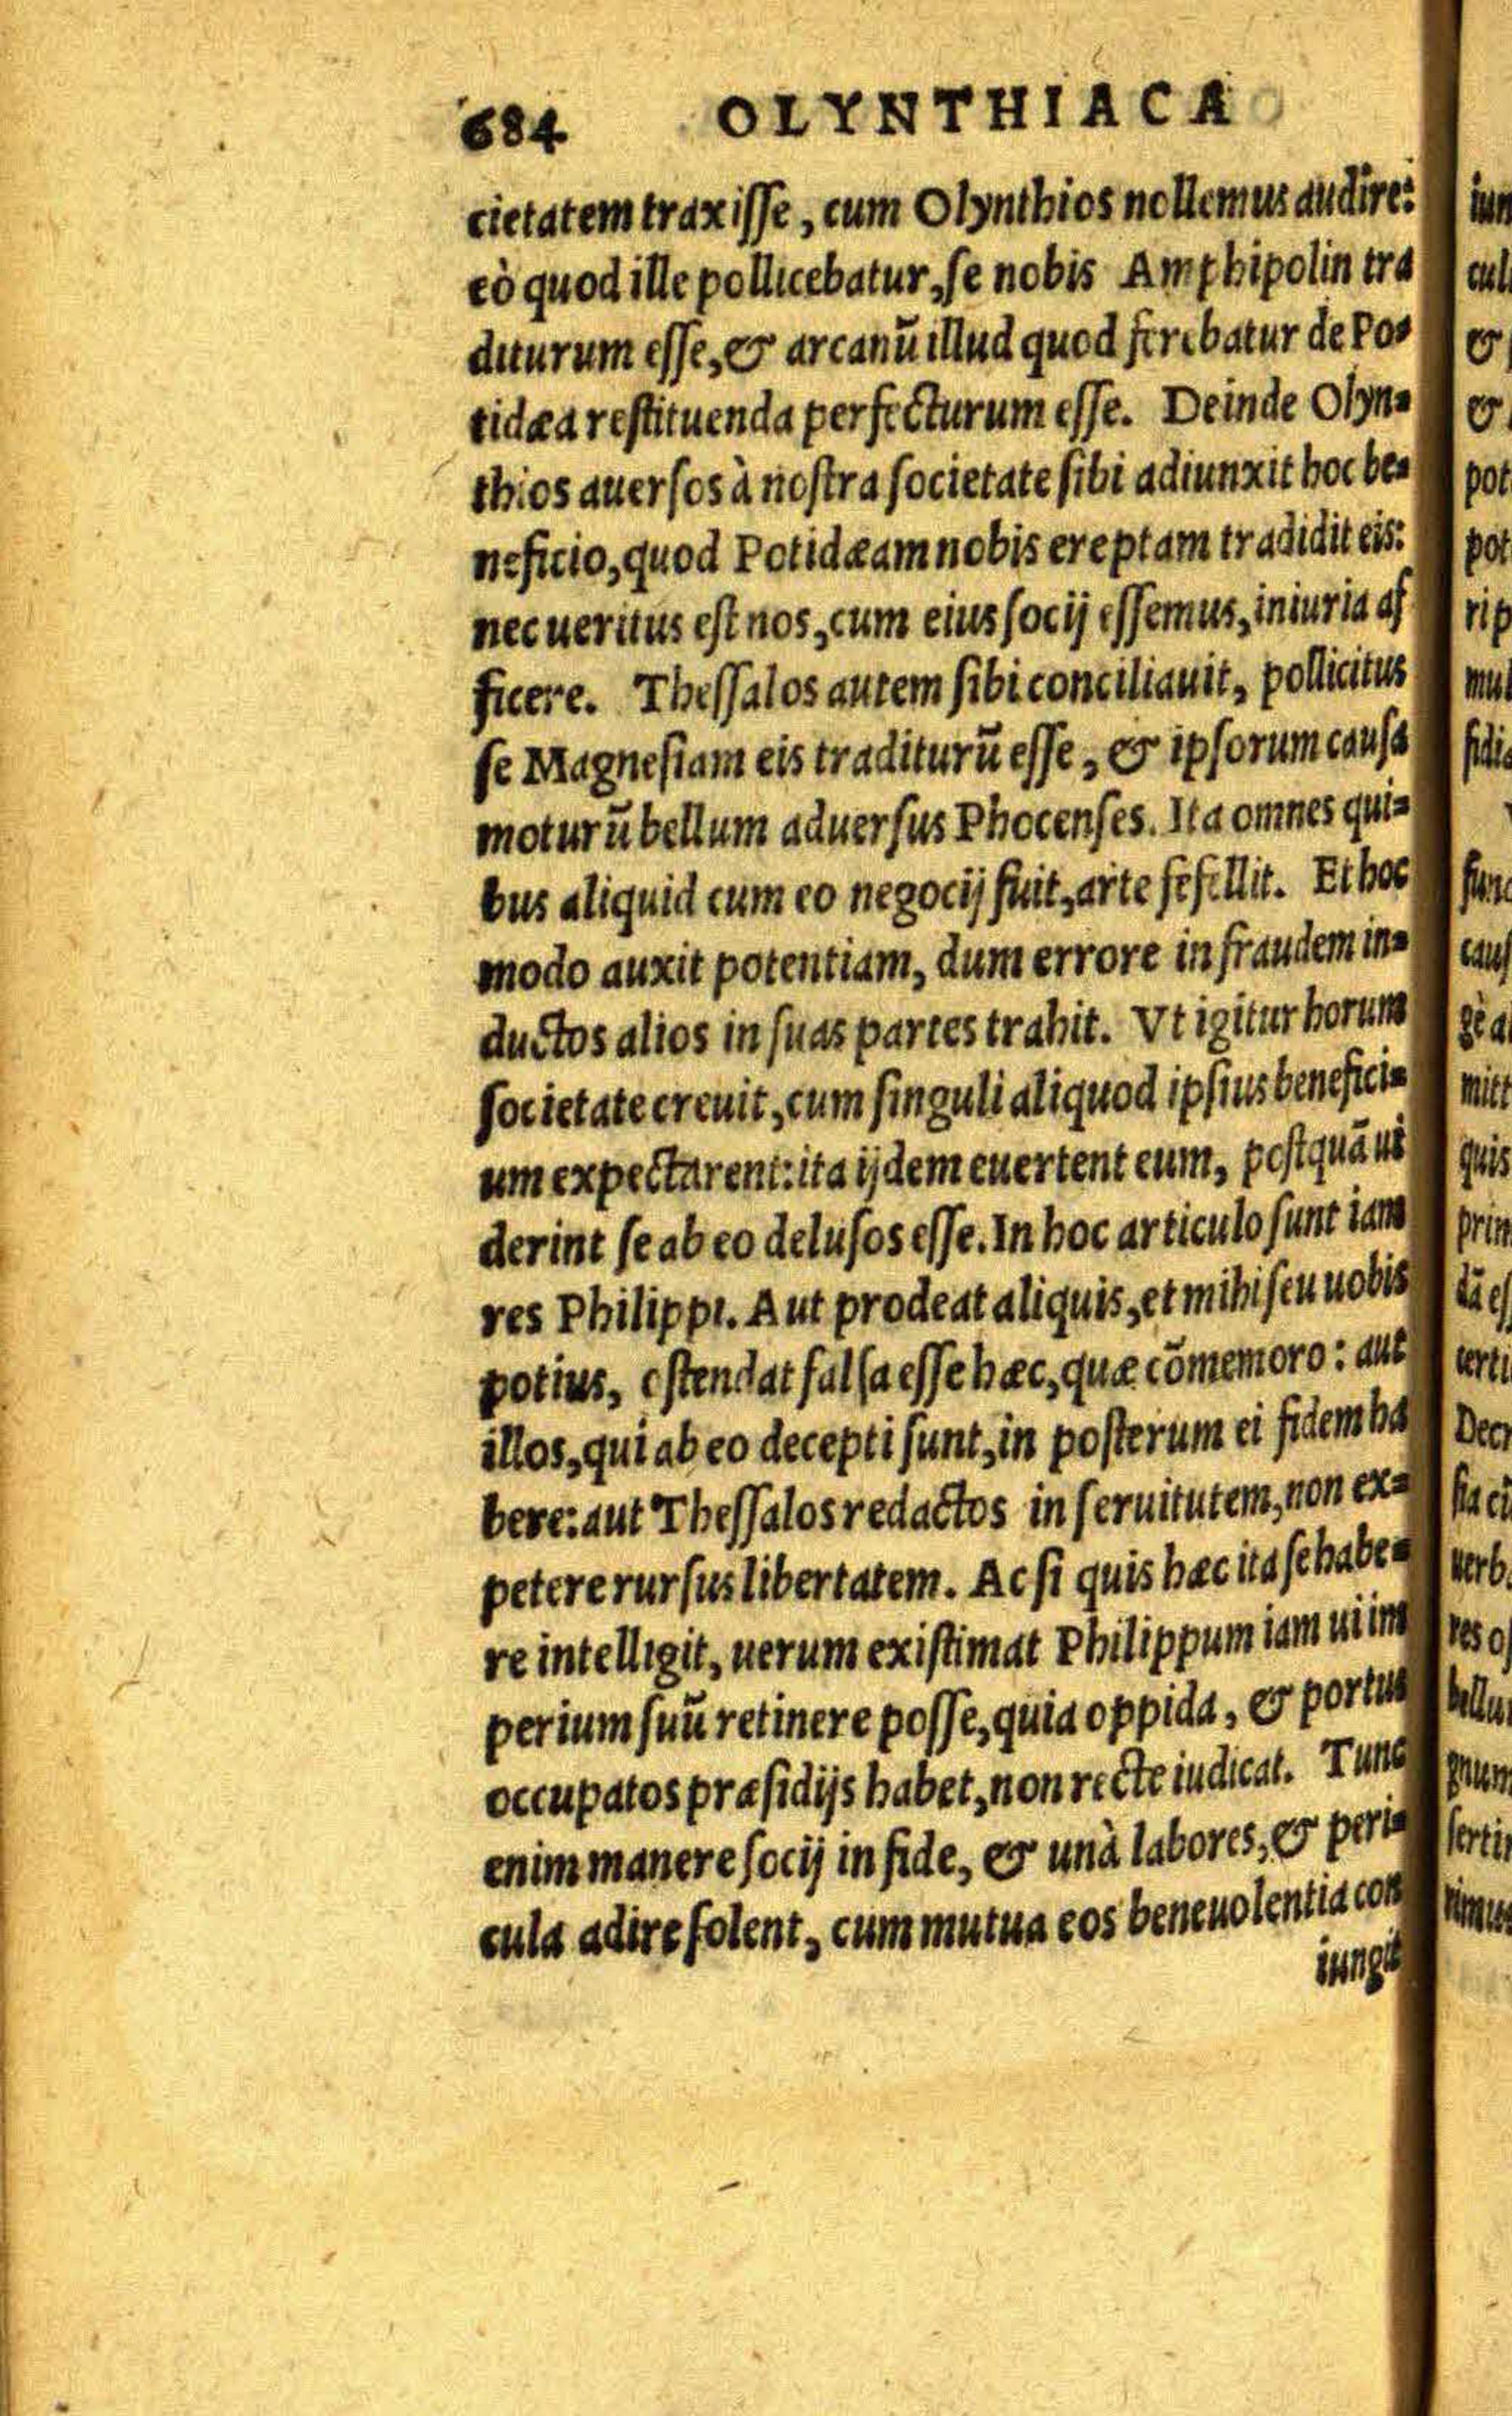 684 OLYNTHIACA
cietatem traxisse, cum Olynthios nollemus audire:
eò quod ille pollicebatur, se nobis Amphipolin tra
diturum esse, & arcanū illud quod ferebatur de Po-
tidæa restituenda perfecturum esse. Deinde Olyn-
thios auersos à nostra societate sibi adiunxit hoc be-
neficio, quod Potidæam nobis ereptam tradidit eis:
nec ueritus est nos, cum eius socij essemus, iniuria af
ficere. Thessalos autem sibi conciliauit, pollicitus
se Magnesiam eis traditurū esse, & ipsorum causa
moturū bellum aduersus Phocenses. Ita omnes qui-
bus aliquid cum eo negocij fuit, arte fefellit. Et hoc
modo auxit potentiam, dum errore in fraudem in-
ductos alios in suas partes trahit. Vt igitur horum
societate creuit, cum singuli aliquod ipsius benefici-
um expectarent: ita ijdem euertent eum, postquā ui
derint se ab eo delusos esse. In hoc articulo sunt iam
res Philippi. Aut prodeat aliquis, et mihi seu uobis
potius, ostendat falsa esse hæc, quæ cōmemoro: aut
illos, qui ab eo decepti sunt, in posterum ei fidem ha
bere: aut Thessalos redactos in seruitutem, non ex-
petere rursus libertatem. Ac si quis hæc ita se habe-
re intelligit, uerum existimat Philippum iam ui im
perium suū retinere posse, quia oppida, & portus
occupatos præsidijs habet, non recte iudicat. Tunc
enim manere socij in fide, & unà labores, & peri-
cula adire solent, cum mutua eos beneuolentia con
iungit